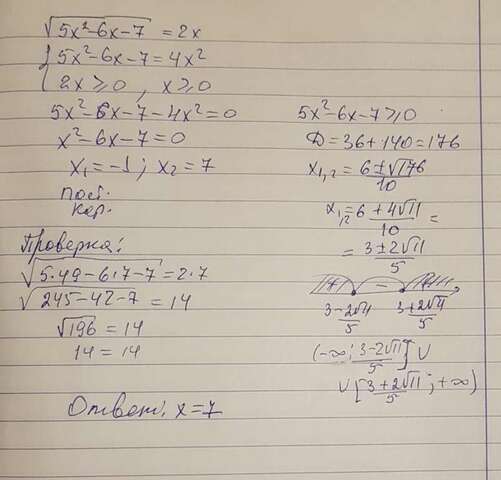 √5x²-6x-7 = 2x
{5x²-6x-7=4x²
2x⩾0, x⩾0
5x²-6x-7-4x²=0
x²-6x-7=0
x₁=-1; x₂=7
пост.
кор.
Проверка:
√5·49-6·7-7=2·7
√245-42-7=14
√196=14
14=14
5x²-6x-7⩾0
D=36+140=176
x₁,₂=6±√176/10
x₁,₂=6±4√11/10=
=3±2√11/5
+ - +
3-2√11/5 3+2√11/5
(-∞; 3-2√11/5] ∪
∪ [3+2√11/5; +∞)
Ответ: x=7